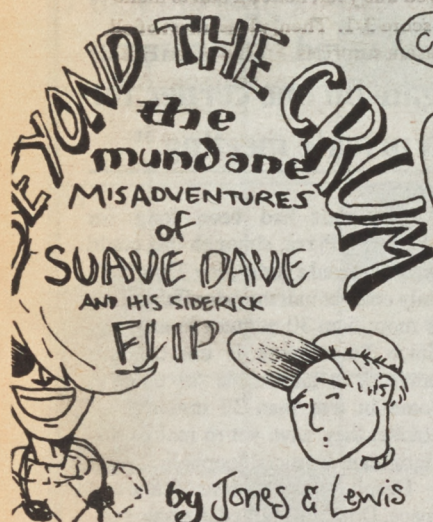 BEYOND THE CRUM
the
mundane
MISADVENTURES
of
SUAVE DAVE
AND HIS SIDEKICK
FLIP
by Jones & Lewis